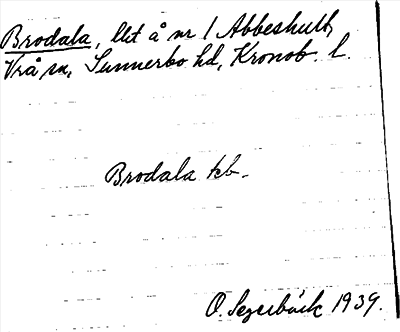 Brodala, lht å nr 1 Abbeshult,
Vrå sn, Sunnerbo hd, Kronob. l.
Brodala kb.
O. Segerbäck 1939.